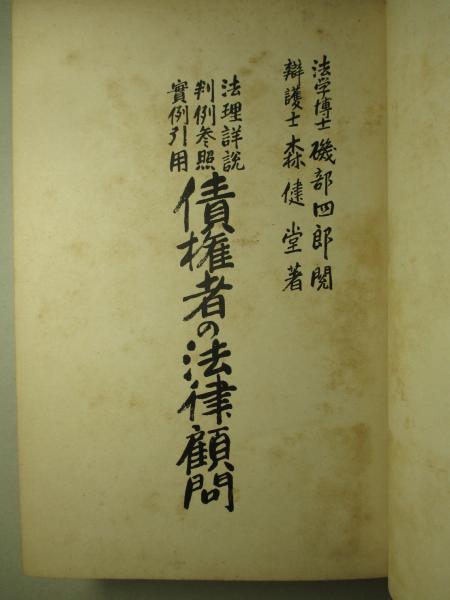 法学博士 磯部四郎閲
辯護士 森健堂著
法理詳説
判例参照
實例引用
債権者の法律顧問